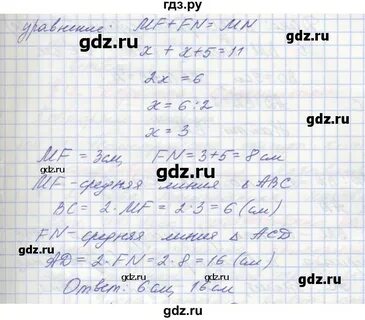 гдз.ру
уравнение: MF+FN=MN
gdz.ru gdz.ru
x + x+5=11
2x = 6
gdz.ru
x = 6:2
x = 3
gdz.ru gdz.ru
MF = 3см FN=3+5=8см
MF-средняя линия △ ABC
gdz.ru
BC = 2·MF = 2·3=6(см)
FN=средняя линия △ ACD
gdz.ru gdz.ru
AD=2·FN=2·8=16(см)
Ответ: 6см, 16см
gdz.ru